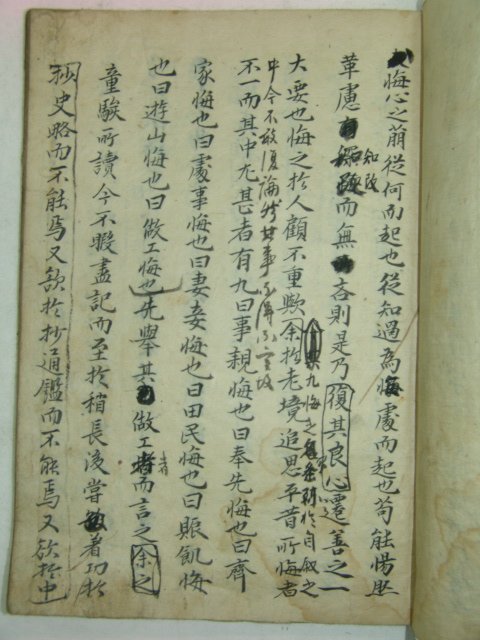 悔心之萌從何而起也從知過爲悔處而起也苟能惕然
革慮知改而無吝則是乃復其良心遷善之一
大要也悔之於人顧不重歟余於老境追思平昔所悔者
不一而其中尤甚者有九曰事親悔也曰奉先悔也曰齊
家悔也曰處事悔也曰妻妾悔也曰田民悔也曰賑飢悔
也曰遊山悔也曰做工悔也先舉其做工者而言之余之
童騃所讀今不暇盡記而至於稍長後嘗着功於
抄史略而不能焉又欲於抄通鑑而不能焉又欲於中